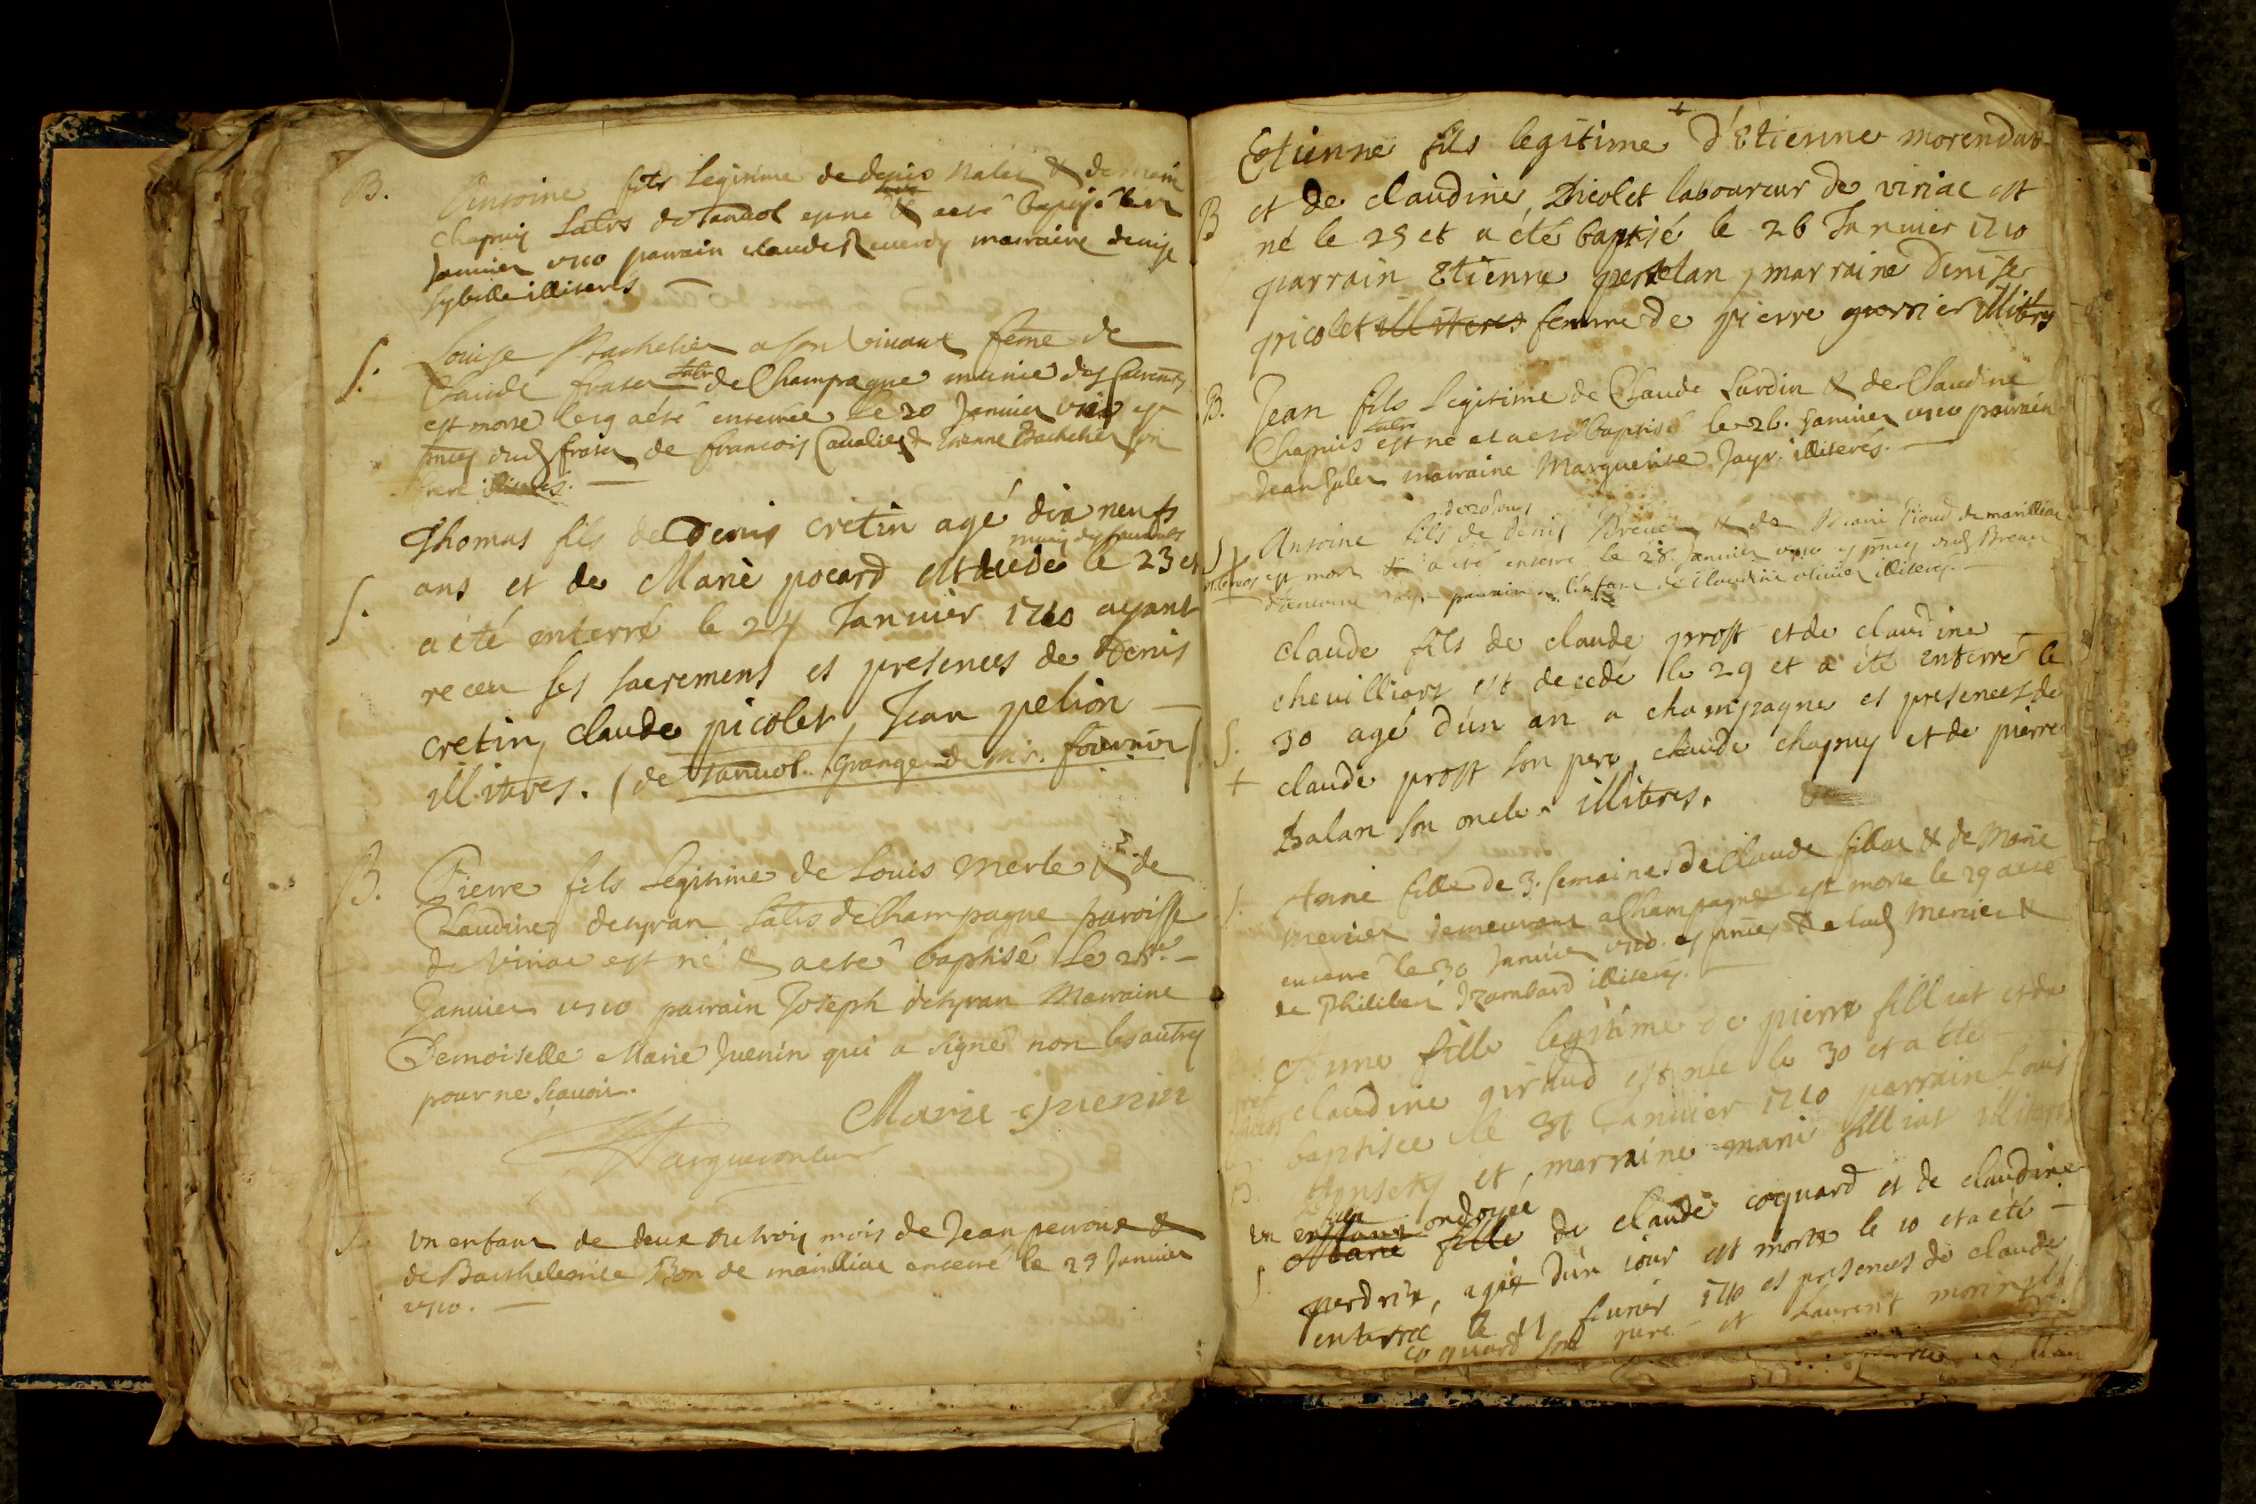 B. Antoine fils Legitime de denis Nalet & de
Chapuis Labrs de Sanvol est né & a eté baptisé le
Janvier 1710 parrain claude Reverdy marraine denise
sybelle illiterés
S. Louise Bachelier a son vivant feme de
Claude frater Labr de Champagne munie des sacremts
est morte le 19 a eté enterrée le 20 Janvier 1710 est
pnces dud frater de francois Cavalier & Bachelier son
frere illiterés.
Thomas fils de Denis cretin agé dix neufs
muny des sacremens
S. ans et de Marie pocard est decedé le 23 et
a été enterré le 24 Janvier 1710 ayant
receu ses sacremens es presences de Denis
cretin, claude picolet, Jean pelion
illiteres. (de Sanvol. Grange de mr. fournier)
B. Pierre fils Legitime de Louis Merle & de
Claudine desyran Labrs de Champagne paroisse
de Viriac est né & a eté baptisé le 28e.
Janvier 1710 parrain Joseph desyran Marraine
Demoiselle Marie Juenin qui a signé non les autres
pour ne scavoir.
Marie Juenin
S. Vn enfant de deux ou trois mois de Jean peroux &
de Barthelemie Bon de marilliac enterré le 29 Janvier
1710.
Etienne fils legitime d'Etienne morendat
B et de claudine picolet laboureur de viriac est
né le 25 et a été baptisé le 26 Janvier 1710
parrain Etienne perselan, marraine Denise
picolet illiteres femme de pierre perrier illitères
B. Jean fils Legitime de Claude Lardin & de Claudine
Chapuis Labrs est né et a eté baptisé le 26. Janvier 1710 parrain
Jean marraine Marguerite Jayr. illiterés.
de 20 Jours
S Antoine fils de denis Brevet & de de marilliac
est mort & a eté enterré le 28 Janvier 1710 es pnces dud Brevet
d'Antoine parrain de l'enfant de Claudine illiterés.
claude fils de claude prost et de claudine
chevilliars est decedé le 29 et a été enterré le
S. 30 agé d'un an a champagne es presences de
claude prost son pere, claude chapuy et de pierre
Balan son oncle illiteres.
S. Anne fille de 3. semaines de Claude fillat & de Marie
Mercier demeurant a Champagne est morte le 29 a eté
enterré le 30 Janvier 1710 es pnces de lad Mercier &
de Philibert Jzambard illiterés.
Anne fille legitime de pierre filliat et de
claudine giraud est née le 30 et a été
baptisée le 31 Janvier 1710 parrain Louis
B. et marraine marie filliat illiteres
un enfant ondoyée
Marie fille de claude coquard et de claudine
S. perdrix, agée d'un jour est morte le 10 et a été
enterrée le 11 fevrier 1710 es presences de claude
coquard son pere et Laurent